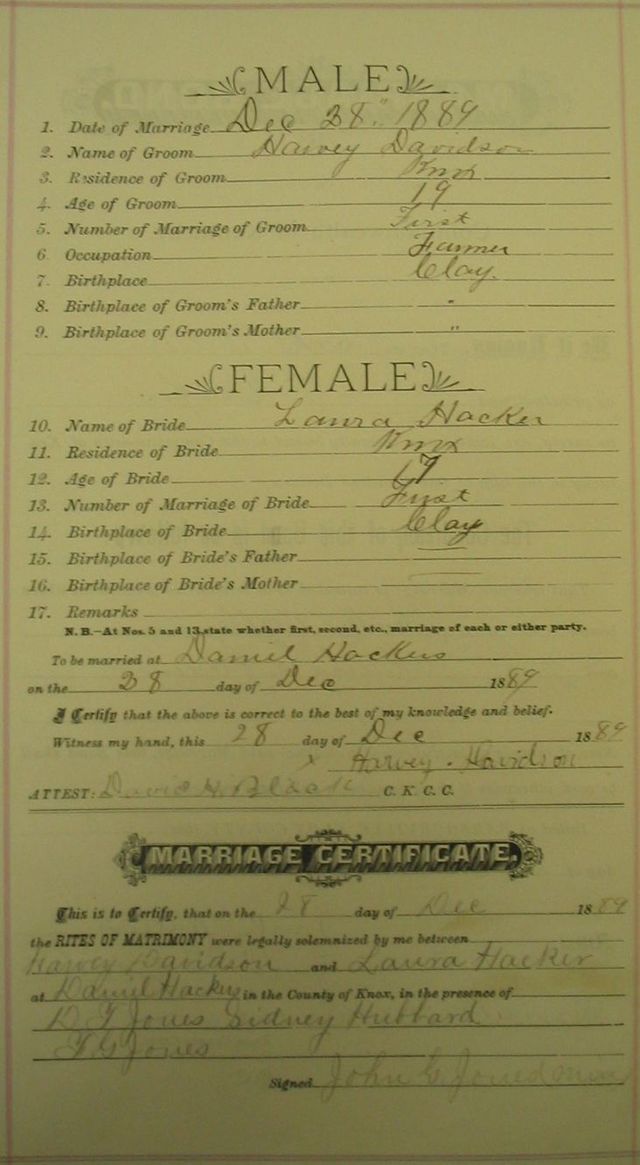 MALE
1. Date of Marriage Dec 28" 1889
2. Name of Groom Harvey Davidson
3. Residence of Groom Knox
4. Age of Groom 19
5. Number of Marriage of Groom First
6 Occupation Farmer
7. Birthplace Clay.
8. Birthplace of Groom's Father "
9. Birthplace of Groom's Mother "
FEMALE
10. Name of Bride Laura Hacker
11. Residence of Bride Knox
12. Age of Bride 17
13. Number of Marriage of Bride First
14. Birthplace of Bride Clay
15. Birthplace of Bride's Father
16. Birthplace of Bride's Mother
17. Remarks
N. B.—At Nos. 5 and 13, state whether first, second, etc., marriage of each or either party.
To be married at Daniel Hackers
on the 28 day of Dec 1889
I Certify that the above is correct to the best of my knowledge and belief.
Witness my hand, this 28 day of Dec 1889
x Harvey Davidson
ATTEST: David H. Black C. K. C. C.
MARRIAGE CERTIFICATE.
This is to Certify, that on the 28 day of Dec 1889
the RITES OF MATRIMONY were legally solemnized by me between
Harvey Davidson and Laura Hacker
at Daniel Hackers in the County of Knox, in the presence of
D. F Jones Sidney Hubbard
F G Jones
Signed John G Jones